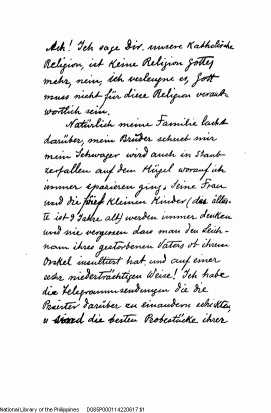 Ach! Ich sage Dir, unsere Katholische
Religion, ist keine Religion Gottes
mehr, nein, ich verleugne es, Gott
muss nicht für diese Religion verant-
wortlich sein.
Natürlich meine Familie lacht
darüber, mein Brüder schreit mir
mein Schwager wird auch in Staub
zerfallen auf dem Hügel worauf ich
immer spazieren ging. Seine Frau
und die fünf kleinen Kinder (das älles-
te ist 9 Jahre alt) werden immer denken
und nie vergessen dass man den Leich-
nam ihres gestorbenen Vaters ot ihrem
Onkel insultiert hat, und auf einer
sehr niederträchtigen Weise! Ich habe
die Telegrammsendungen die die
Priester darüber zu einandern schickten,
u die besten Probestücke ihrer
National Library of the Philippines D08SP00011422061741